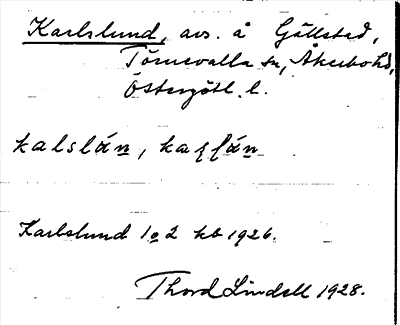 Karlslund, avs. å Gällstad,
Törnevalla sn, Åkerbo hd,
Östergötl. l.
kalslán,
Karlslund 1o2 kb 1926.
Thord Lindell 1928.